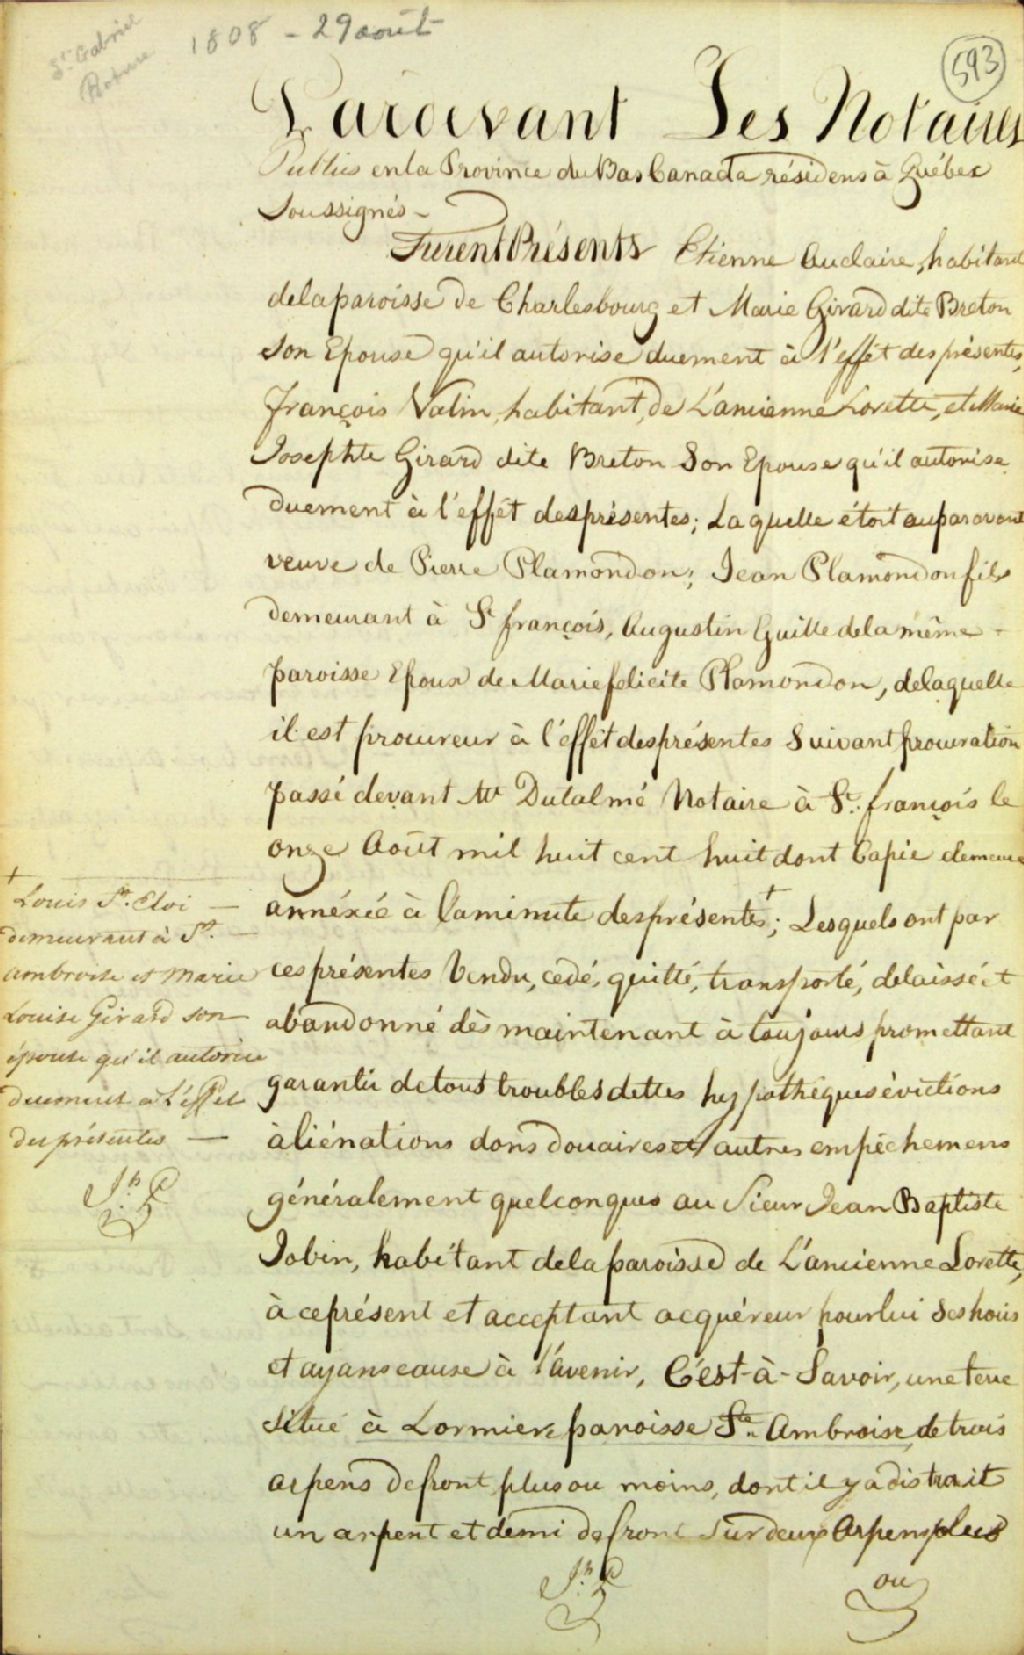 St Gabriel
Roture
1808 - 29 août
593
Pardevant Les Notaires
Publics en la Province du Bas Canada résidens à Québec
Soussignés -
Furent Présents Etienne Auclaire, habitant
de la paroisse de Charlesbourg et Marie Girard dite Breton
son Epouse qu'il autorise duement à l'effet des présentes,
françois Valin, habitant, de L'ancienne Lorette, et Marie
Josephte Girard dite Breton Son Epouse qu'il autorise
duement à l'effêt des présentes; Laquelle étoit auparavant
veuve de Pierre Plamondon; Jean Plamondon fils
demeurant à St françois, Augustin Guille de la même -
paroisse Epoux de Marie felicite Plamondon, de laquelle
il est procureur à l'éffèt des présentes Suivant procuration
passé devant Mr Dulalmé Notaire à St. françois le
onze Août mil huit cent huit dont Copie demeure
annéxée à la minute des présentes +; Lesquels ont par
ces présentes Vendu, cedé, quitté, transporté, delaissé et
abandonné dès maintenant à toujours promettant
garantir de tous troubles dettes hypothèques évictions
aliénations dons douaires et autres empêchemens
généralement quelconques au Sieur Jean Baptiste
Jobin, habitant de la paroisse de L'ancienne Lorette,
à ce présent et acceptant acquéreur pour lui Ses hoirs
et ayans cause à l'avenir, C'est-à-Savoir, une terre
Situé à Lormier, paroisse St. Ambroise, de trois
arpens de front plus ou moins, dont il y a distrait
un arpent et demi de front Sur deux Arpens plus
ou
Jh
+
Louis St. Eloi -
demeurant à St. -
ambroise et Marie
Louise Girard son
épouse qu'il autorise
duement a L'effet
des présentes -
Jh